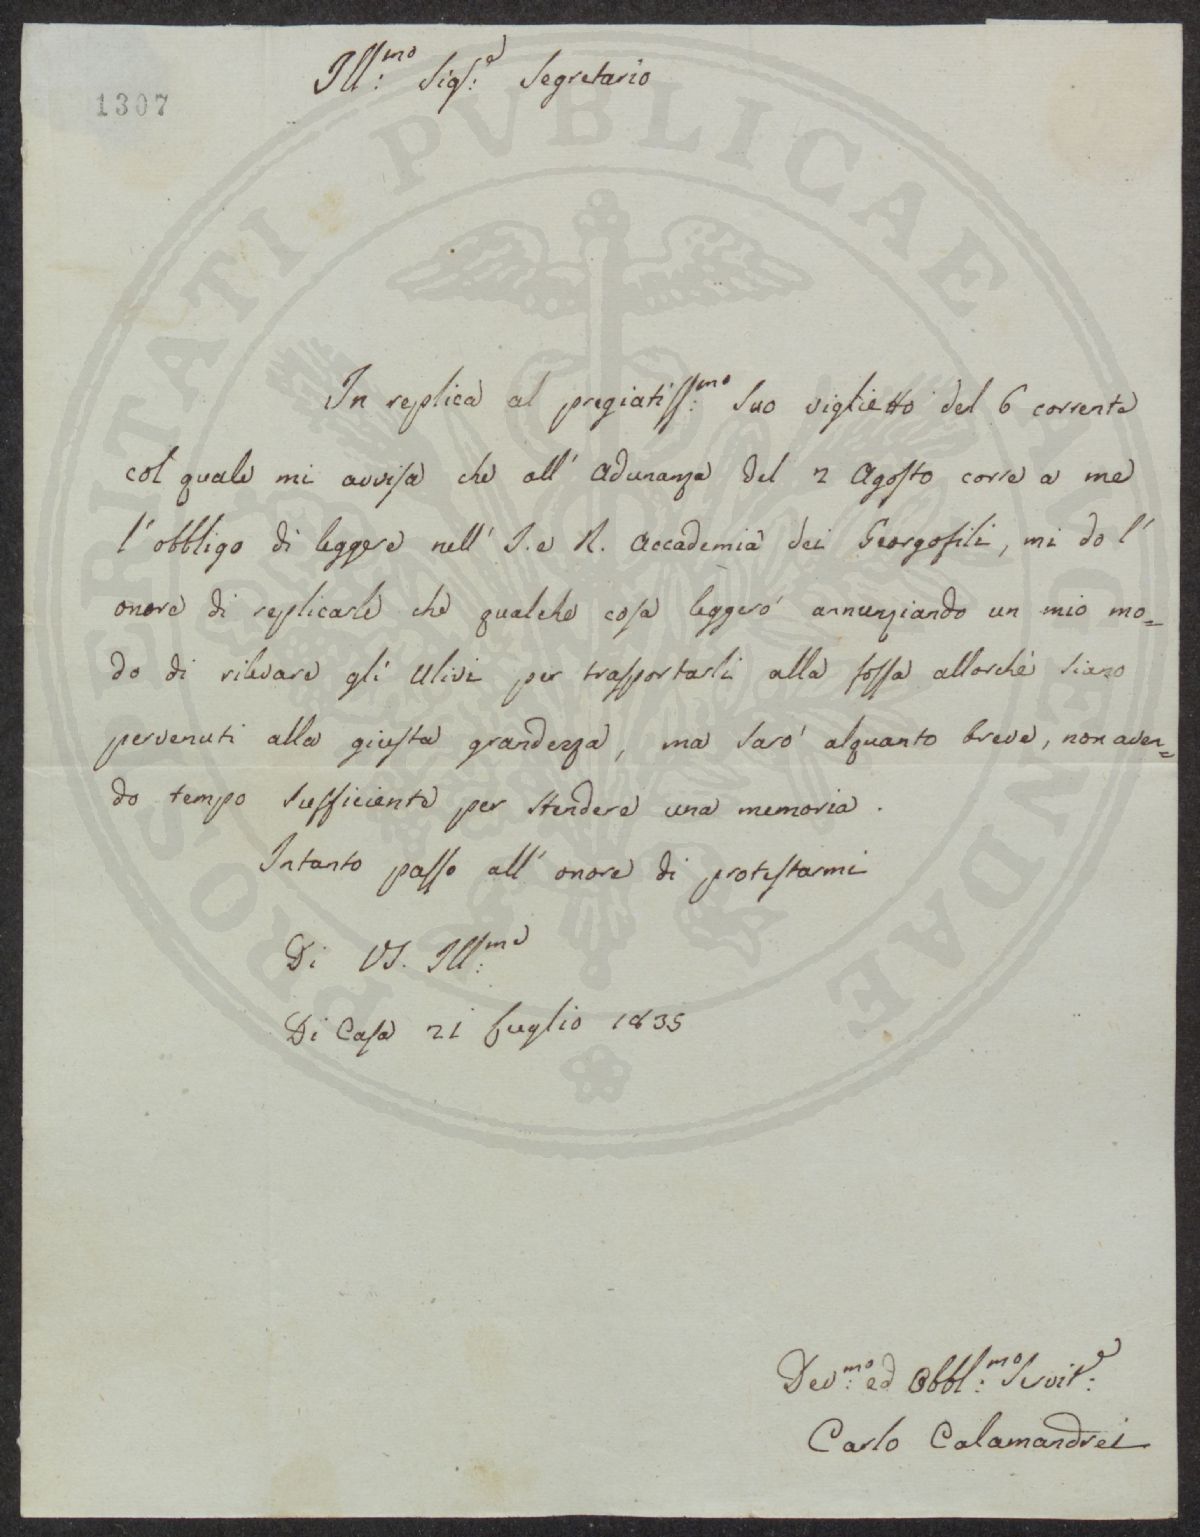 1307
Ill:mo Sig:e Segretario
In replica al pregiatiss:mo suo viglietto del 6 corrente
col quale mi avvisa che all' adunanza del 2 Agosto corre a me
l' obbligo di leggere nell' I. e R. Accademia dei Georgofili, mi do l'
onore di replicarle che qualche cosa leggerò annunziando un mio mo=
do di rilevare gli Ulivi per trasportarli alla fossa allorchè siano
pervenuti alla giusta grandezza, ma sarò alquanto breve, non aven=
do tempo sufficiente per stendere una memoria.
Intanto passo all' onore di protestarmi
Di VS. Ill:ma
Di Casa 21 Luglio 1835
Dev:mo ed Obbl:mo Servit:e
Carlo Calamandrei
PROSPERITATI PVBLICAE AVGENDAE